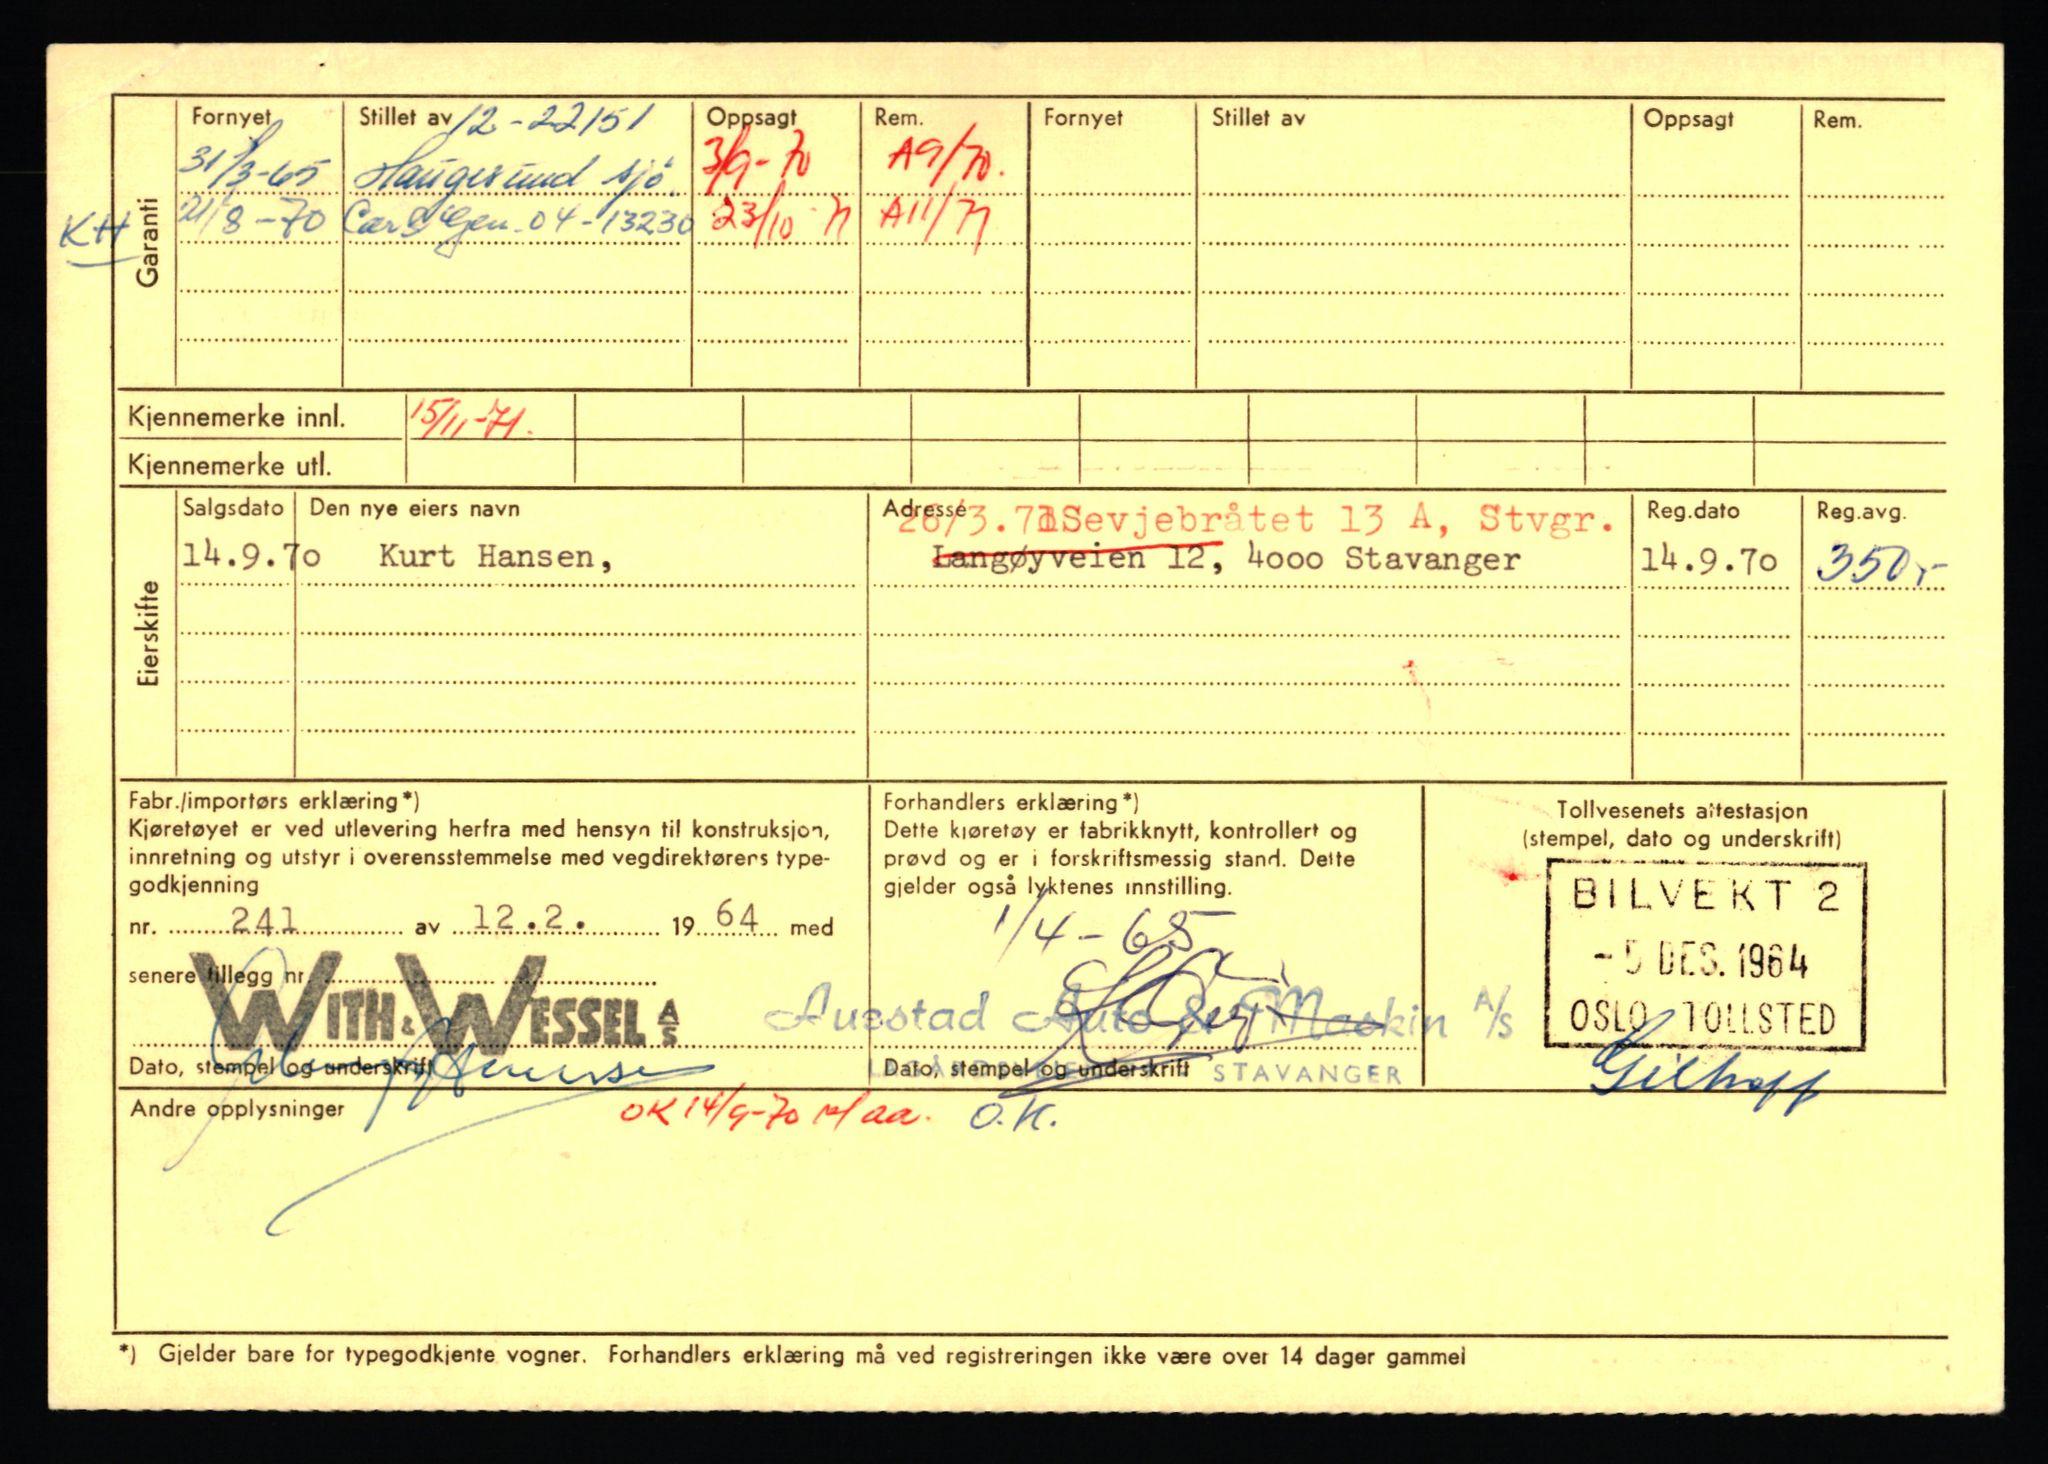 Fornyet Stillet av 12-22151 Oppsagt Rem. Fornyet Stillet av Oppsagt Rem.
31/3-65 Haugesund sjø. 3/9-70 A9/70.
KH 21/8-70 04-13230 23/10-71 A11/71
Garanti
Kjennemerke innl. 15/11-71.
Kjennemerke utl.
Salgsdato Den nye eiers navn Adresse 26/3.71 Sevjebråtet 13 A, Stvgr. Reg.dato Reg.avg.
14.9.70 Kurt Hansen, Langøyveien 12, 4000 Stavanger 14.9.70 350,-
Eierskifte
Fabr./importørs erklæring*)
Kjøretøyet er ved utlevering herfra med hensyn til konstruksjon,
innretning og utstyr i overensstemmelse med vegdirektørens type-
godkjenning
nr. 241 av 12.2. 1964 med
senere tillegg nr.
WITH & WESSEL A/S
Dato, stempel og underskrift
Forhandlers erklæring*)
Dette kjøretøy er fabrikknytt, kontrollert og
prøvd og er i forskriftsmessig stand. Dette
gjelder også lyktenes innstilling.
1/4-65
Auestad Auto & Maskin A/S
Dato, stempel og underskrift STAVANGER
Tollvesenets attestasjon
(stempel, dato og underskrift)
BILVEKT 2
-5 DES. 1964
OSLO TOLLSTED
Andre opplysninger OK 14/9-70 O.K.
*) Gjelder bare for typegodkjente vogner. Forhandlers erklæring må ved registreringen ikke være over 14 dager gammel